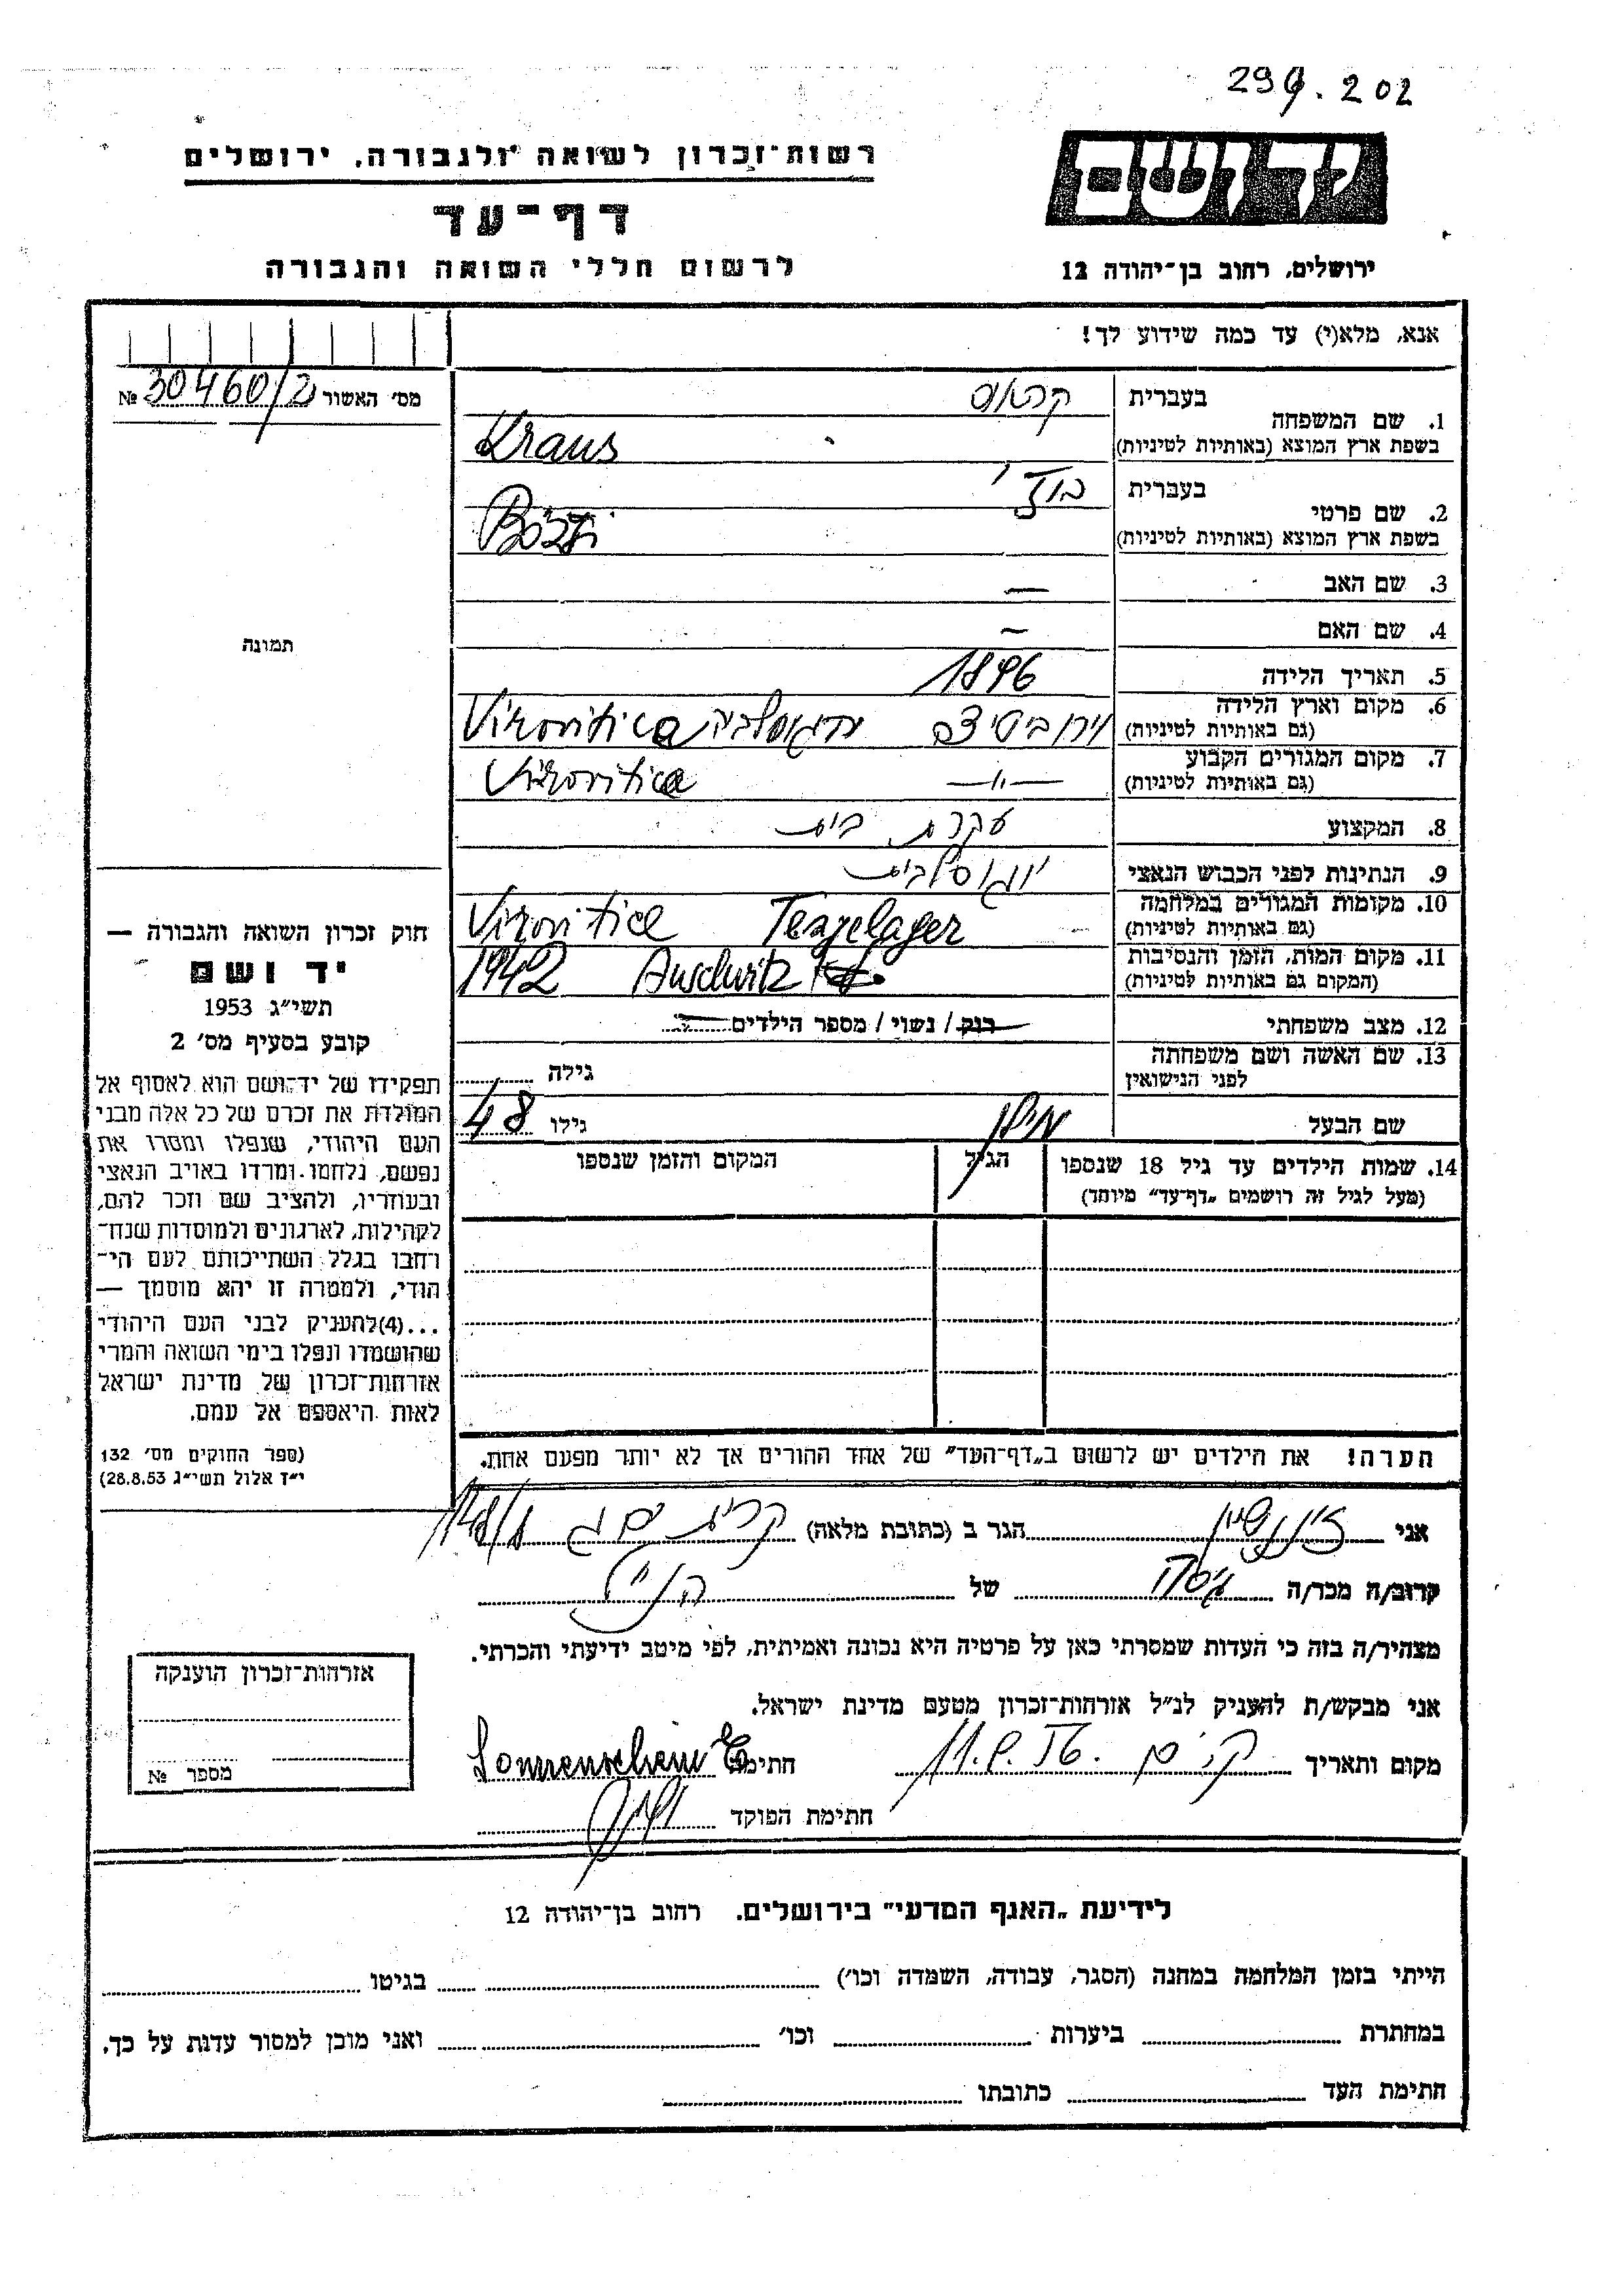 299.202
רשות־זכרון לשואה ולגבורה, ירושלים
דף־עד
לרשום חללי השואה והגבורה
יד ושם
ירושלים, רחוב בן־יהודה 12
אנא, מלא(י) עד כמה שידוע לך!
מס׳ האשור 30460/2 №
תמונה
חוק זכרון השואה והגבורה —
יד ושם
תשי״ג 1953
קובע בסעיף מס׳ 2
תפקידו של יד־ושם הוא לאסוף אל
המולדת את זכרם של כל אלה מבני
העם היהודי, שנפלו ומסרו את
נפשם, נלחמו ומרדו באויב הנאצי
ובעוזריו, ולהציב שם וזכר להם,
לקהילות, לארגונים ולמוסדות שנח־
רחבו בגלל השתייכותם לעם הי־
הודי, ולמטרה זו יהא מוסמך —
...(4) להעניק לבני העם היהודי
שהושמדו ונפלו בימי השואה והמרי
אזרחות־זכרון של מדינת ישראל
לאות היאספם אל עמם.
(ספר החוקים מס׳ 132
י״ז אלול תשי״ג 28.8.53)
בעברית קראוס
1. שם המשפחה
בשפת ארץ המוצא (באותיות לטיניות) Kraus
בעברית בוז׳י
2. שם פרטי
בשפת ארץ המוצא (באותיות לטיניות) Bözsi
3. שם האב —
4. שם האם —
5. תאריך הלידה 1896
6. מקום וארץ הלידה וירוביטיצה יוגוסלביה Virovitica
(גם באותיות לטיניות)
7. מקום המגורים הקבוע —״— Virovitica
(גם באותיות לטיניות)
8. המקצוע עקרת בית
9. הנתינות לפני הכבוש הנאצי יוגוסלבית
10. מקומות המגורים במלחמה Virovitica Tezselager
(גם באותיות לטיניות)
11. מקום המות, הזמן והנסיבות 1942 Auschwitz
(המקום גם באותיות לטיניות)
12. מצב משפחתי רוק / נשוי / מספר הילדים
13. שם האשה ושם משפחתה גילה
לפני הנישואין
שם הבעל גילו 48
14. שמות הילדים עד גיל 18 שנספו הגיל המקום והזמן שנספו
(מעל לגיל זה רושמים „דף־עד״ מיוחד)
הערה! את הילדים יש לרשום ב„דף־העד״ של אחד ההורים אך לא יותר מפעם אחת.
אני זוננשיין הגר ב (כתובת מלאה) קרית ים ג 148/1
קרוב/ה מכר/ה גיסה של הנ״ל
מצהיר/ה בזה כי העדות שמסרתי כאן על פרטיה היא נכונה ואמיתית, לפי מיטב ידיעתי והכרתי.
אני מבקש/ת להעניק לנ״ל אזרחות־זכרון מטעם מדינת ישראל.
מקום ותאריך ק. ים חתימה Sonnenschein E
חתימת הפוקד
אזרחות־זכרון הוענקה
מספר №
לידיעת „האגף המדעי״ בירושלים. רחוב בן־יהודה 12
הייתי בזמן המלחמה במחנה (הסגר, עבודה, השמדה וכו׳) בגיטו
במחתרת ביערות וכו׳ ואני מוכן למסור עדות על כך.
חתימת העד כתובתו